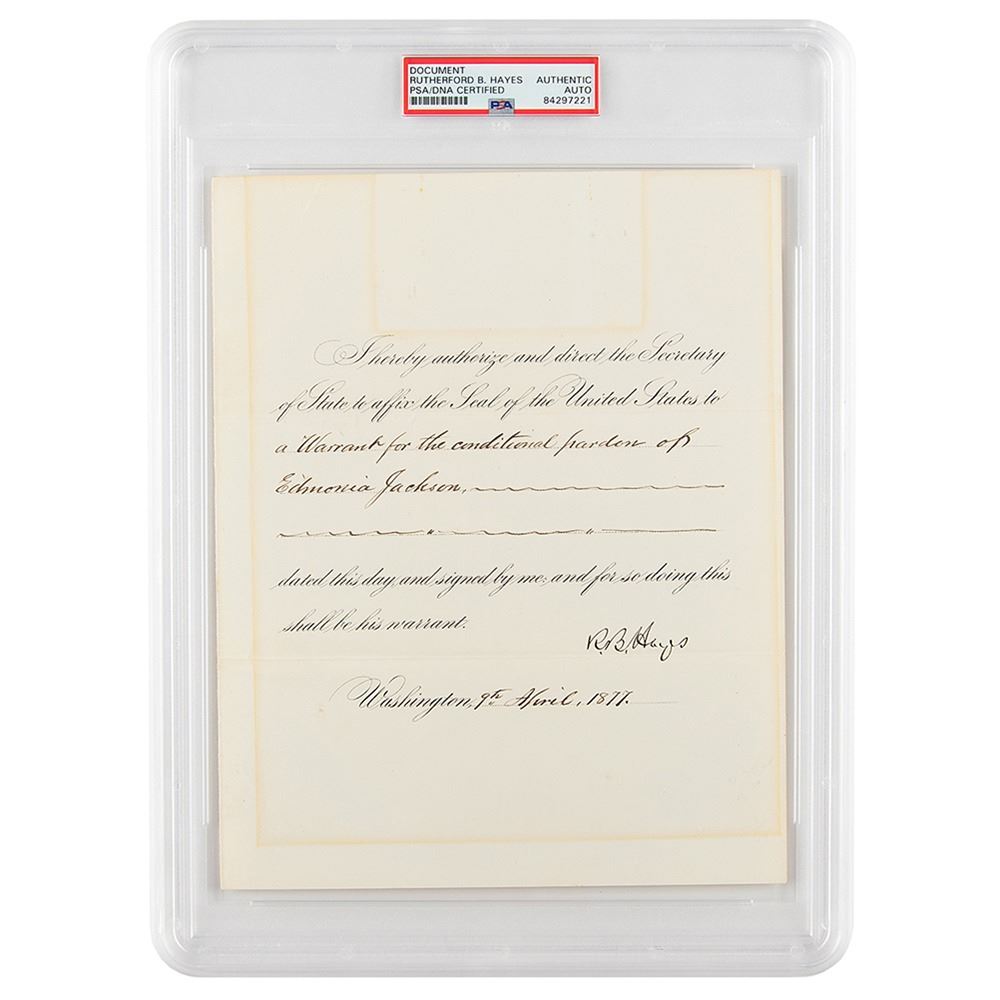 DOCUMENT
RUTHERFORD B. HAYES AUTHENTIC
PSA/DNA CERTIFIED AUTO
PSA 84297221
I hereby authorize and direct the Secretary
of State to affix the Seal of the United States to
a Warrant for the conditional pardon of
Edmonia Jackson,
dated this day, and signed by me; and for so doing this
shall be his warrant.
R.B. Hayes
Washington, 9th April, 1877.